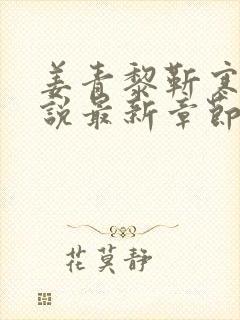 姜青黎靳寒
説最新章節
花莫静